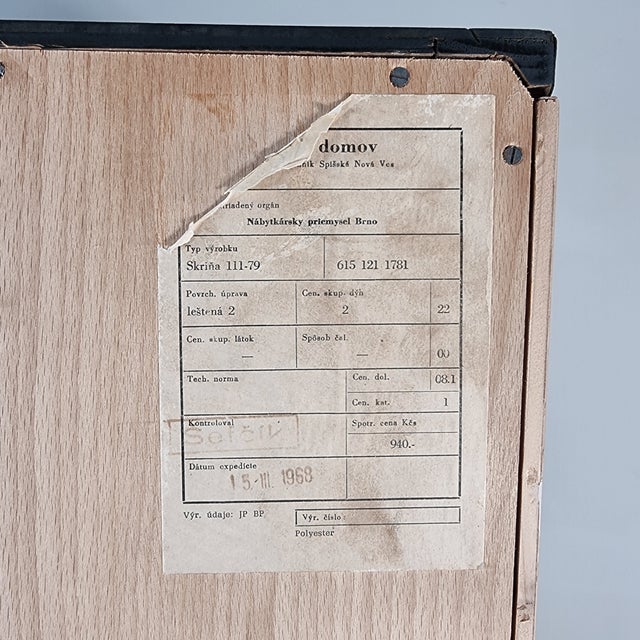 domov
Spišská Nová Ves
riadený orgán
Nábytkársky priemysel Brno
Typ výrobku
Skriňa 111-79 615 121 1781
Povrch. úprava Cen. skup. dýh
leštená 2 2 22
Cen. skup. látok Spôsob čal.
— — 00
Tech. norma Cen. dol. 08.1
Cen. kat. 1
Kontroloval Spotr. cena Kčs
940.-
Dátum expedície
15-III. 1968
Výr. údaje: JP BP Výr. číslo:
Polyester